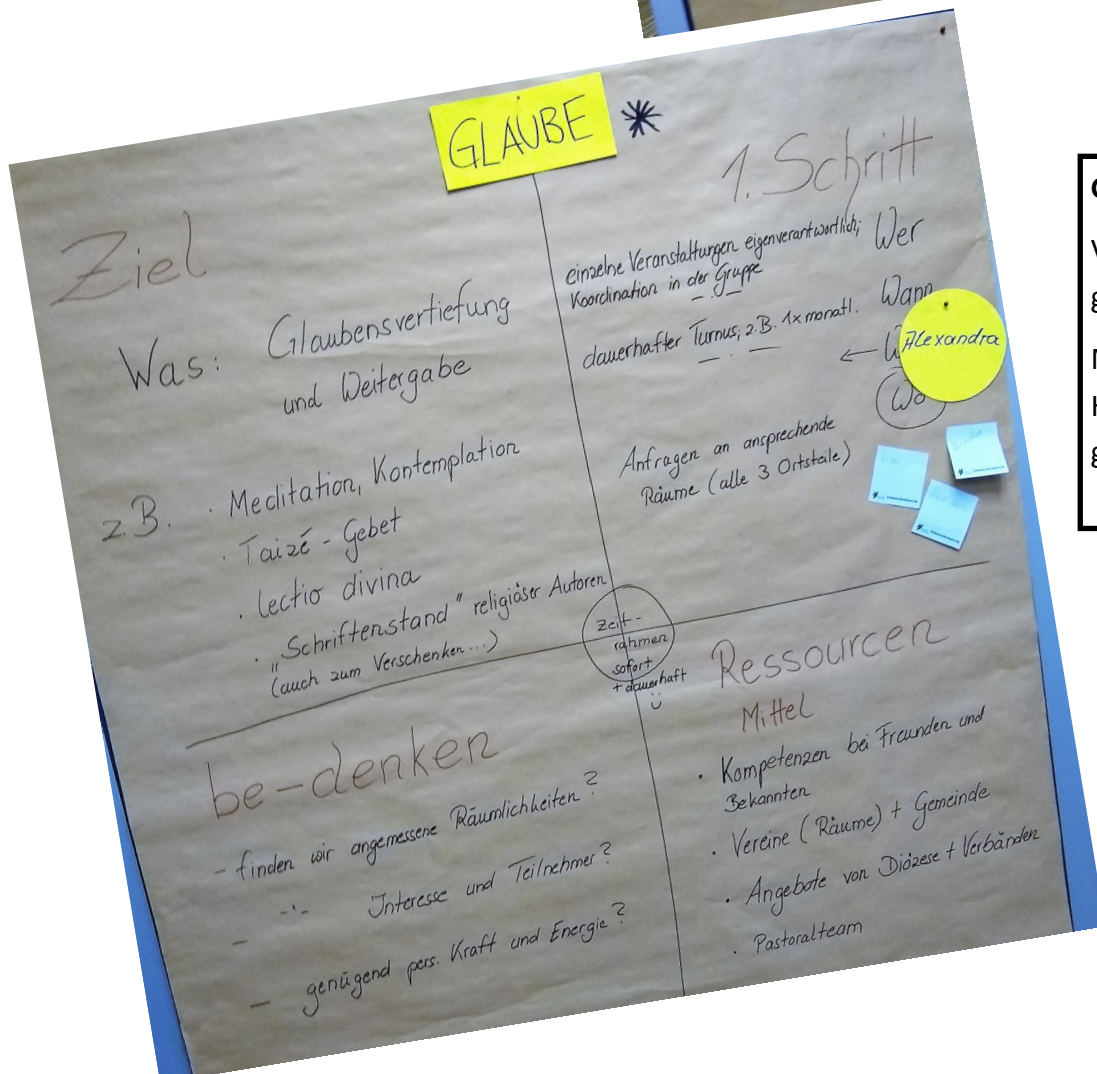 GLAUBE *
Ziel
Was: Glaubensvertiefung
und Weitergabe
z.B. · Meditation, Kontemplation
· Taizé - Gebet
· Lectio divina
· „Schriftenstand" religiöser Autoren
(auch zum Verschenken...)
1. Schritt
einzelne Veranstaltungen eigenverantwortlich; Wer
Koordination in der Gruppe
Wann
dauerhafter Turnus; z.B. 1x monatl.
←
Alexandra
Wo
Anfragen an ansprechende
Räume (alle 3 Ortsteile)
Zeit-
rahmen
sofort
+ dauerhaft
be-denken
- finden wir angemessene Räumlichkeiten?
- -"- Interesse und Teilnehmer?
- genügend pers. Kraft und Energie?
Ressourcen
Mittel
· Kompetenzen bei Freunden und
Bekannten
· Vereine (Räume) + Gemeinde
· Angebote von Diözese + Verbänden
· Pastoralteam